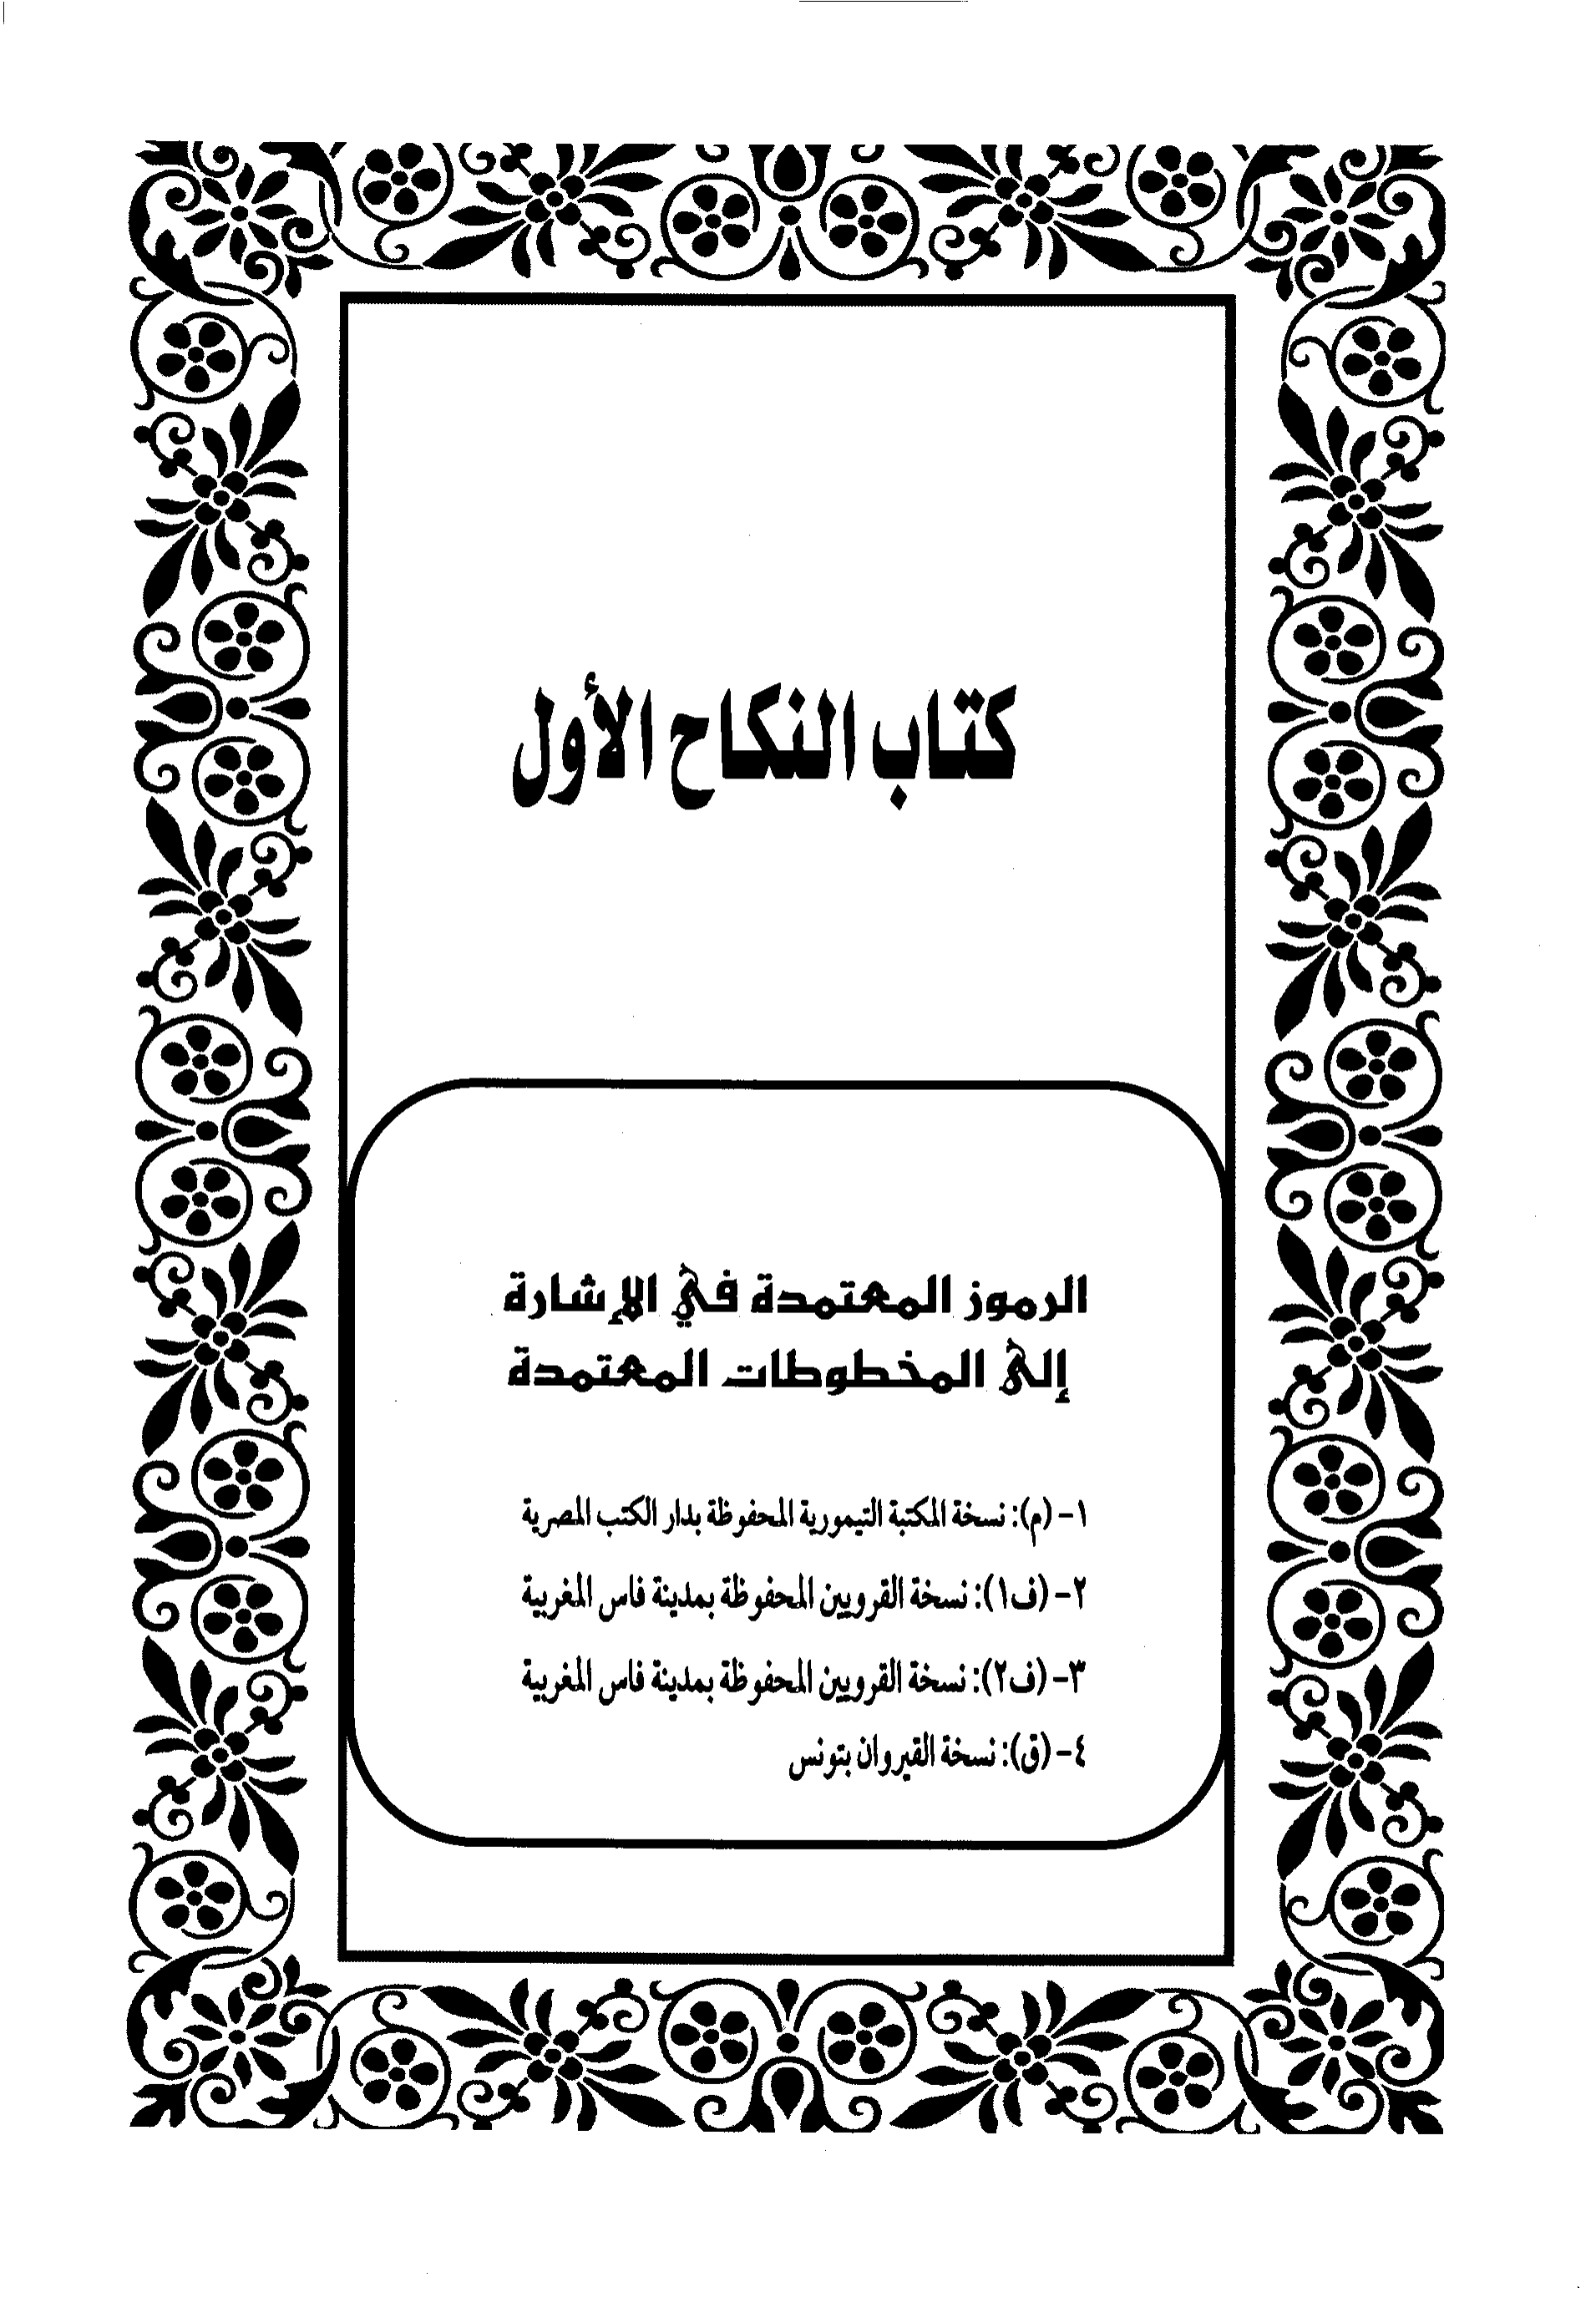 كتاب النكاح الأول
الرموز المعتمدة في الإشارة
إلى المخطوطات المعتمدة
١- (م): نسخة المكتبة التيمورية المحفوظة بدار الكتب المصرية
٢- (ف١): نسخة القرويين المحفوظة بمدينة فاس المغربية
٣- (ف٢): نسخة القرويين المحفوظة بمدينة فاس المغربية
٤- (ق): نسخة القيروان بتونس